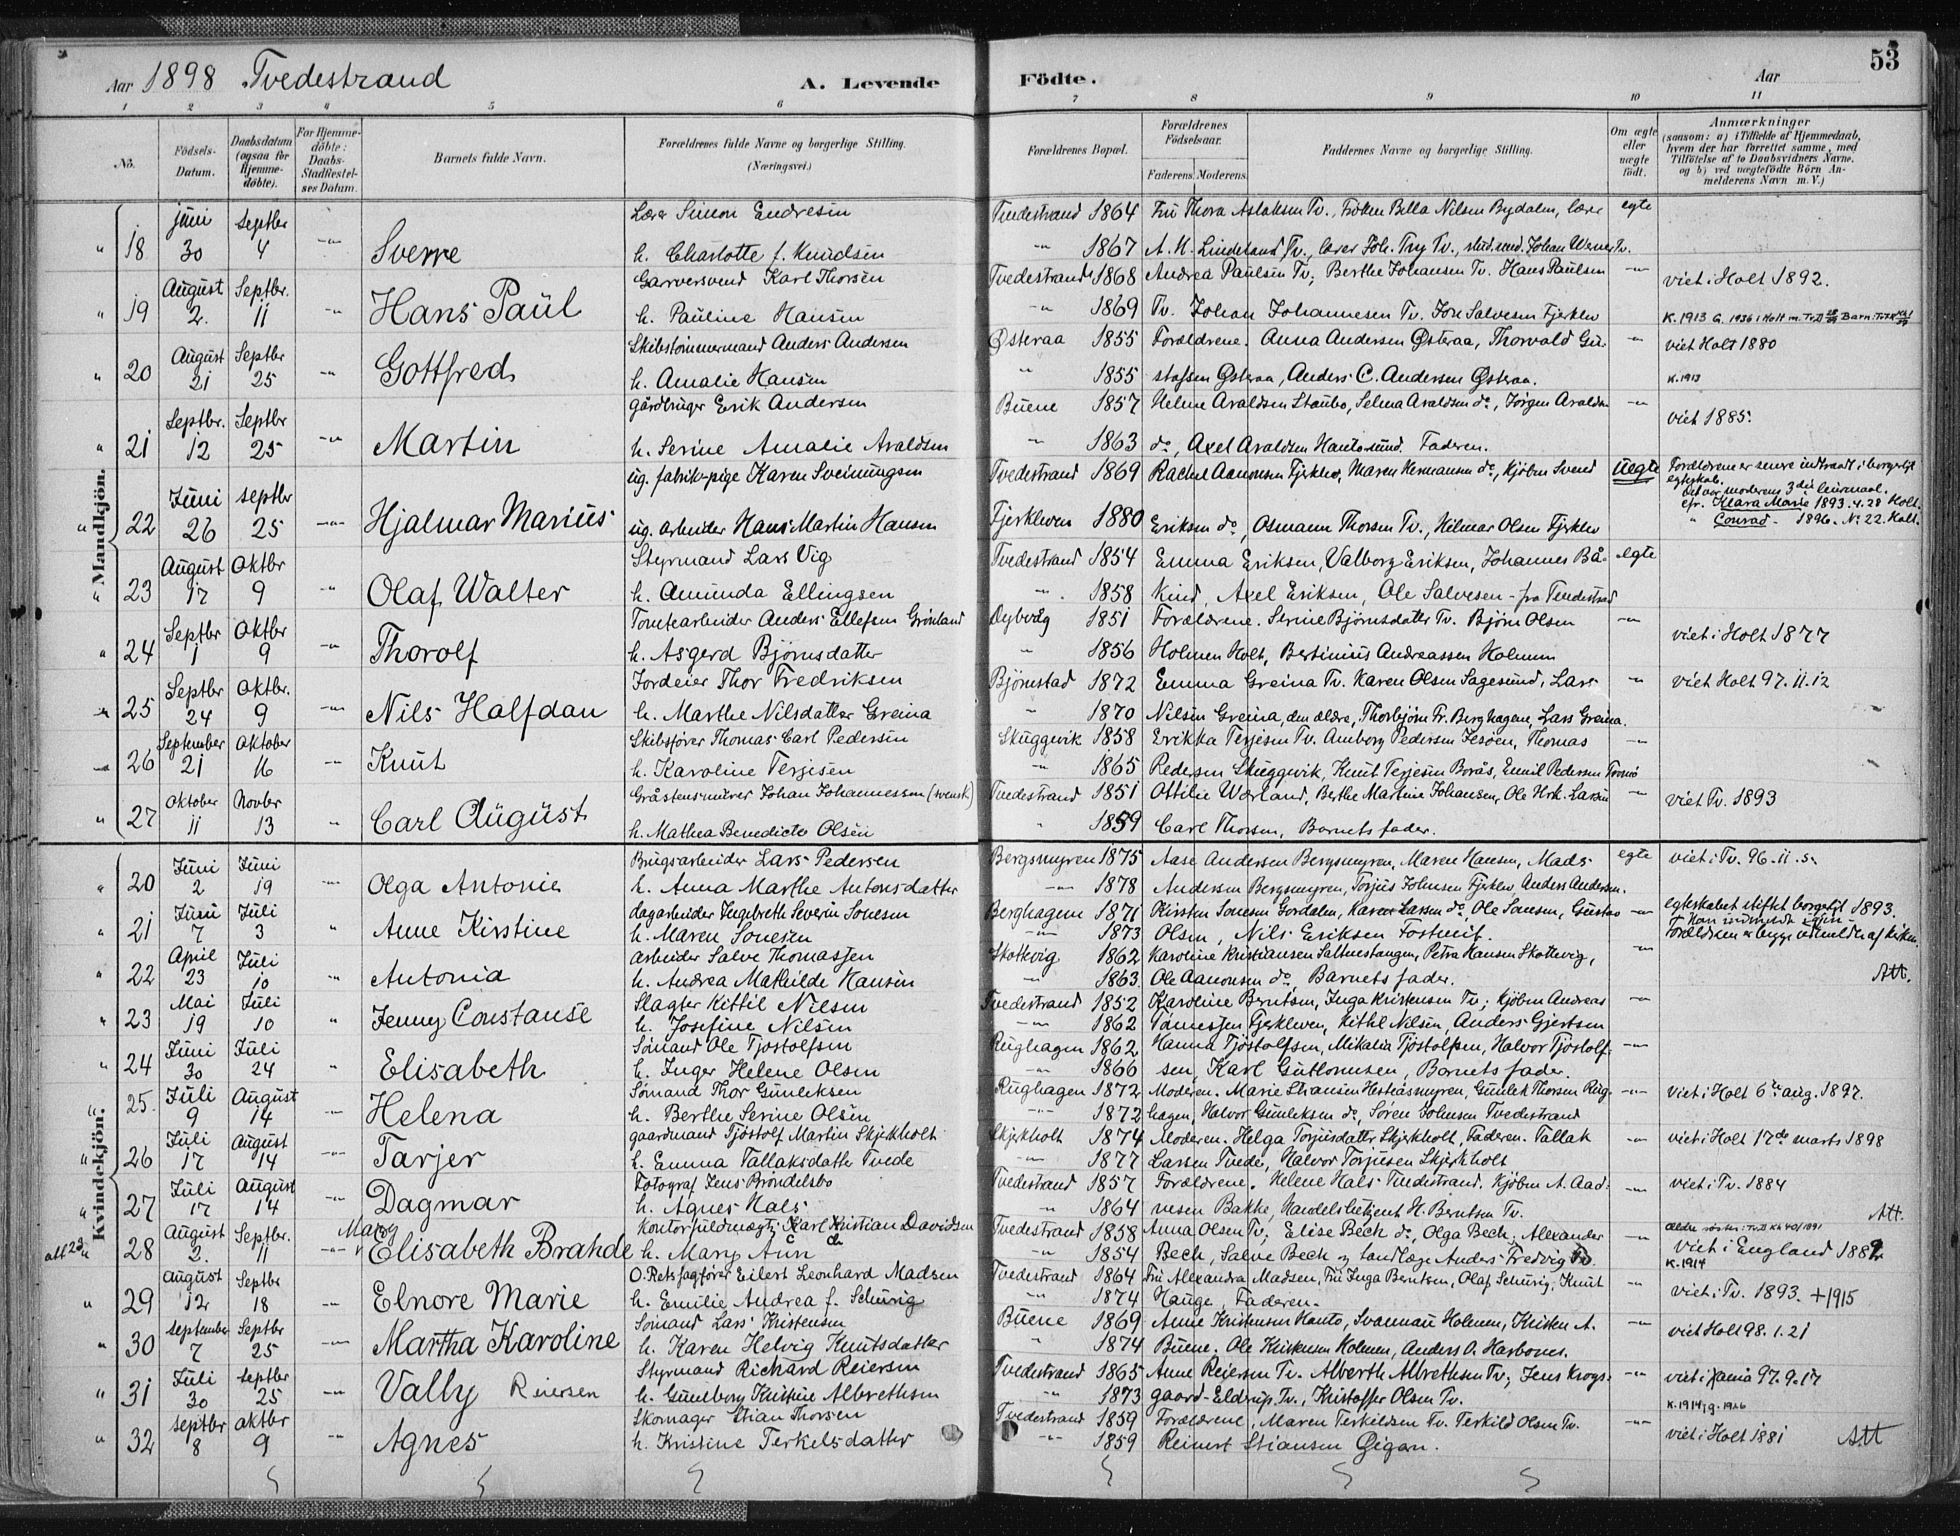 53
Aar 1898 Tvedestrand A. Levende Födte. Aar
1 2 3 4 5 6 7 8 9 10 11
No. Födsels-Datum. Daabsdatum (ogsaa for Hjemmedöbte). For Hjemmedöbte: Daabs-Stadfæstelses Datum. Barnets fulde Navn. Forældrenes fulde Navne og borgerlige Stilling. (Næringsvei.) Forældrenes Bopæl. Forældrenes Födselsaar. Faderens. Moderens. Faddernes Navne og borgerlige Stilling. Om ægte eller uægte födt. Anmærkninger (saasom: a) i Tilfælde af Hjemmedaab, hvem der har forrettet samme, med Tilföielse af to Daabsvidners Navne, og b) ved uægtefödte Börn Anmelderens Navn m. V.)
Mandkjön.
juni Septbr Lærer Simon Endresen Tvedestrand 1864 Fru Thora Aslaksen Tv., Frøken Bella Nilsen Bydalen, lærer egte
18 30 4 Sverre h. Charlotte f. Knudsen 1867 A. K. Lindeland Tv., lærer Joh. Try Tv., stud. med. Johan Werner Tv.
August Septbr. Garversvend Karl Thorsen Tvedestrand 1868 Andrea Paulsen Tv; Berthe Johansen Tv. Hans Paulsen viet i Holt 1892.
19 2. 11 Hans Paul h. Pauline Hansen 1869 Tv. Johan Johannesen Tv. Jon Salvesen Fjerklev K. 1913 G. 1936 i Holt
August Septbr Skibstømmermand Anders Andersen Østeraa 1855 Forældrene. Anna Andersen Østeraa, Thorvald Gu- viet Holt 1880
20 21 25 Gottfred h. Amalie Hansen 1855 stafsen Østeraa, Anders C. Andersen Østeraa. K. 1913
Septbr. Septbr gårdbruger Erik Andersen Buene 1857 Helene Avaldsen Staubø, Selma Avaldsen do, Jørgen Avaldsen viet 1885.
21 12 25 Martin h. Serine Amalie Avaldsen 1863 do, Axel Avaldsen Hantosund. Faderen.
ug. fabrikpige Karen Sveinungsen Tvedestrand 1869 Rachel Aanonsen Fjerklev, Maren Hermansen do, Kjøbm Svend uegte Forældrene er senere indtraadt i borgerligt egteskab.
Juni septbr det var moderens 3die leiermaal.
22 26 25 Hjalmar Marius ug. arbeider Hans Martin Hansen Fjerkleven 1880 Eriksen do, Osmann Thorsen Tv., Hilmar Olsen Fjerklev cfr. Klara Marie 1893.4.28 Holt.
" Conrad - 1896. No 22. Holt.
August Oktbr Styrmand Lars Vig Tvedestrand 1854 Emma Eriksen, Valborg Eriksen, Johannes Bå- egte
23 17 9 Olaf Walter h. Amunda Ellingsen 1858 kind, Axel Eriksen, Ole Salvesen - fra Tvedestrand
Septbr Oktbr Tomtearbeider Anders Ellefsen Grønland Dybvåg 1851 Forældrene. Serine Bjørnsdatter Tv. Bjørn Olsen viet i Holt 1877
24 1 9 Thorolf h. Asgerd Bjørnsdatter 1856 Holmen Holt, Bertinius Andreassen Holmen
Septbr Oktbr. Jordeier Thor Fredriksen Bjørnstad 1872 Emma Greina Tv. Karen Olsen Sagesund, Lars viet Holt 97.11.12
25 24 9 Nils Halfdan h. Marthe Nilsdatter Greina 1870 Nilsen Greina, den ældre, Thorbjørn Fr. Berghagen, Lars Greina.
September Oktober Skibsfører Thomas Carl Pedersen Skuggevik 1858 Erikka Terjesen Tv. Amborg Pedersen Jesøen, Thomas
26 21 16 Knut h. Karoline Terjesen 1865 Pedersen Skuggevik, Knut Terjesen Borås, Emil Pedersen
Oktober Novbr Gråstensmurer Johan Johannessen (svensk) Tvedestrand 1851 Ottilie Wærland, Berthe Martine Johansen, Ole Hrk. Larsen viet Tv. 1893
27 11 13 Carl August h. Mathea Benedicte Olsen 1859 Carl Thorsen, Barnets fader.
Kvindekjön.
Juni Juni Brugsarbeider Lars Pedersen Bergsmyren 1875 Aase Andersen Bergsmyren, Maren Hansen, Mads egte viet i Tv. 96.11.5.
20 2 19 Olga Antonie h. Anna Marthe Antonsdatter 1878 Andersen Bergsmyren, Torjus Johnsen Fjerklev Anders Andersen.
Juni Juli dagarbeider Ingebreth Severin Sonesen Berghagene 1871 Kirsten Sonesen Gordalen, Karen Larsen do, Ole Sonesen, Gustav egteskabet stiftet borgerligt 1893.
21 7 3 Anne Kirstine h. Maren Sonesen 1873 Olsen, Nils Eriksen Fostveit. Forældrene er begge udmeldte af kirken.
April Juli arbeider Salve Thomassen Skottevig 1862 Karoline Kristiansen Saltnestangen, Petra Hansen Skottevig,
22 23 10 Antonia h. Andrea Mathilde Hansen 1863 Ole Aanonsen do, Barnets fader. Att.
Mai Juli Slagter Kittil Nilsen Tvedestrand 1852 Karoline Berntsen, Inga Kristensen Tv; Kjøbm Andreas
23 19 10 Jenny Constanse h. Josefine Nilsen 1862 Tønnessen Fjerkleven, Kittil Nilsen, Anders Gjertsen
Juni Juli Sømand Ole Tjøstolfsen Rughagen 1862 Hanna Tjøstolfsen, Mikalia Tjøstolfsen, Halvor Tjøstolf-
24 30 24 Elisabeth h. Inger Helene Olsen 1866 sen, Karl Guttormsen, Barnets fader.
25. Juli August Sømand Thor Gunleksen Rughagen 1872 Moderen. Marie Stiansen Hesteåsmyren, Gunlek Thorsen Rug- viet i Holt 6te aug. 1897.
9 14 Helena h. Berthe Serine Olsen 1872 hagen, Halvor Gunleksen do, Søren Johnsen Tvedestrand
Juli August gaardmand Tjøstolf Martin Skjerkholt Skjerkholt 1874 Moderen. Helga Torjusdatter Skjerkholt, Faderen. Tallak viet i Holt 17de marts 1898
26 17 14 Tarjer h. Emma Tallaksdatter Tvede 1877 Larsen Tvede, Halvor Torjusen Skjerkholt
Juli August Fotograf Jens Brøndelsbo Tvedestrand 1857 Forældrene. Helene Hals Tvedestrand. Kjøbm A. Aad- viet i Tv. 1884
27 17 14 Dagmar h. Agnes Hals 1864 nesen Bakke, Handelsbetjent H. Berntsen Tv. Att.
August Septbr. Mary Kontorfuldmægt; Karl Kristian Davidsen Tvedestrand 1858 Anna Olsen Tv; Elise Beck do, Olga Beck, Alexander
28 2. 11 Elisabeth Brahde h. Mary Ann 1854 Beck, Salve Beck og Landlæge Anders Fredvig Tv. viet i England 1889 K. 1914
August Septbr O. Retssagfører Eilert Leonhard Madsen Tvedestrand 1864 Fru Alexandra Madsen, Fru Inga Berntsen, Olaf Schurig, Knut
29 12 18 Elnore Marie h. Emilie Andrea f. Schurig 1874 Hauge, Faderen. viet i Tv. 1893. +1915
September Septbr Sømand Lars Kristensen Buene 1869 Anne Kristensen Hantø, Svannau Holmen, Kristen A.
30 7 25 Martha Karoline h. Karen Helvig Knutsdatter 1874 Buene. Ole Kristensen Holmen, Anders O. Harbones. viet Holt 98.1.21
Juli septbr Styrmand Richard Reiersen Tvedestrand 1865 Anne Reiersen Tv. Alberth Albrethsen Tv; Jens Krogs- viet i 97.9.17
31 30 25 Vally Reiersen h. Gunborg Kristine Albrethsen 1873 gaard-Eldrup Tv., Kristoffer Olsen Tv. K. 1914
septbr oktbr Skomager Stian Thorsen Tvedestrand 1859 Forældrene, Maren Terkildsen Tv. Terkild Olsen Tv.
32 8 9 Agnes h. Kristine Terkelsdatter 1859 Reinert Stiansen Gigan. viet i Holt 1881 Att